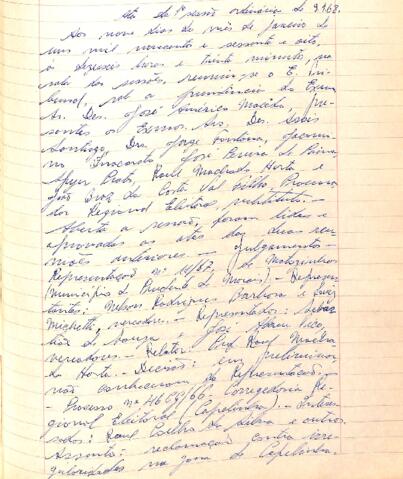 Ata da 1ª sessão ordinária de 1968.
Aos nove dias do mês de janeiro de
um mil novecentos e sessenta e oito,
às dezesseis horas e trinta minutos, na
sala das sessões, reuniu-se o E. Tri-
bunal, sob a presidência do Exmo
Sr. Des. José Américo Macêdo, pre-
sentes os Exmos. Srs. Des.
Santiago, Drs. Jorge Fontana,
José Pereira de Paiva,
Prates, Raul Machado Horta e
João Braz da Costa Val Filho, Procura-
dor Regional Eleitoral, substituto. -
Aberta a sessão, foram lidas e
aprovadas as atas das duas reu-
niões anteriores. - Julgamentos -
Representação nº 14/67, de Matozinhos
(município de Prudente de Morais) - Represen-
tantes: Nelson Rodrigues Barbosa e
vereadores. - Representados: Sebas-
tião de Souza e José
vereadores. - Relator: Prof. Raul Macha-
do Horta. - Decisão: em preliminar
não conheceram da Representação. -
- Processo nº 4609/66 - Corregedoria Re-
gional Eleitoral (Capelinha) - Interes-
sados: Raul Coelho da Silva e outros
Assunto: reclamação contra irre-
gularidades na zona de Capelinha.